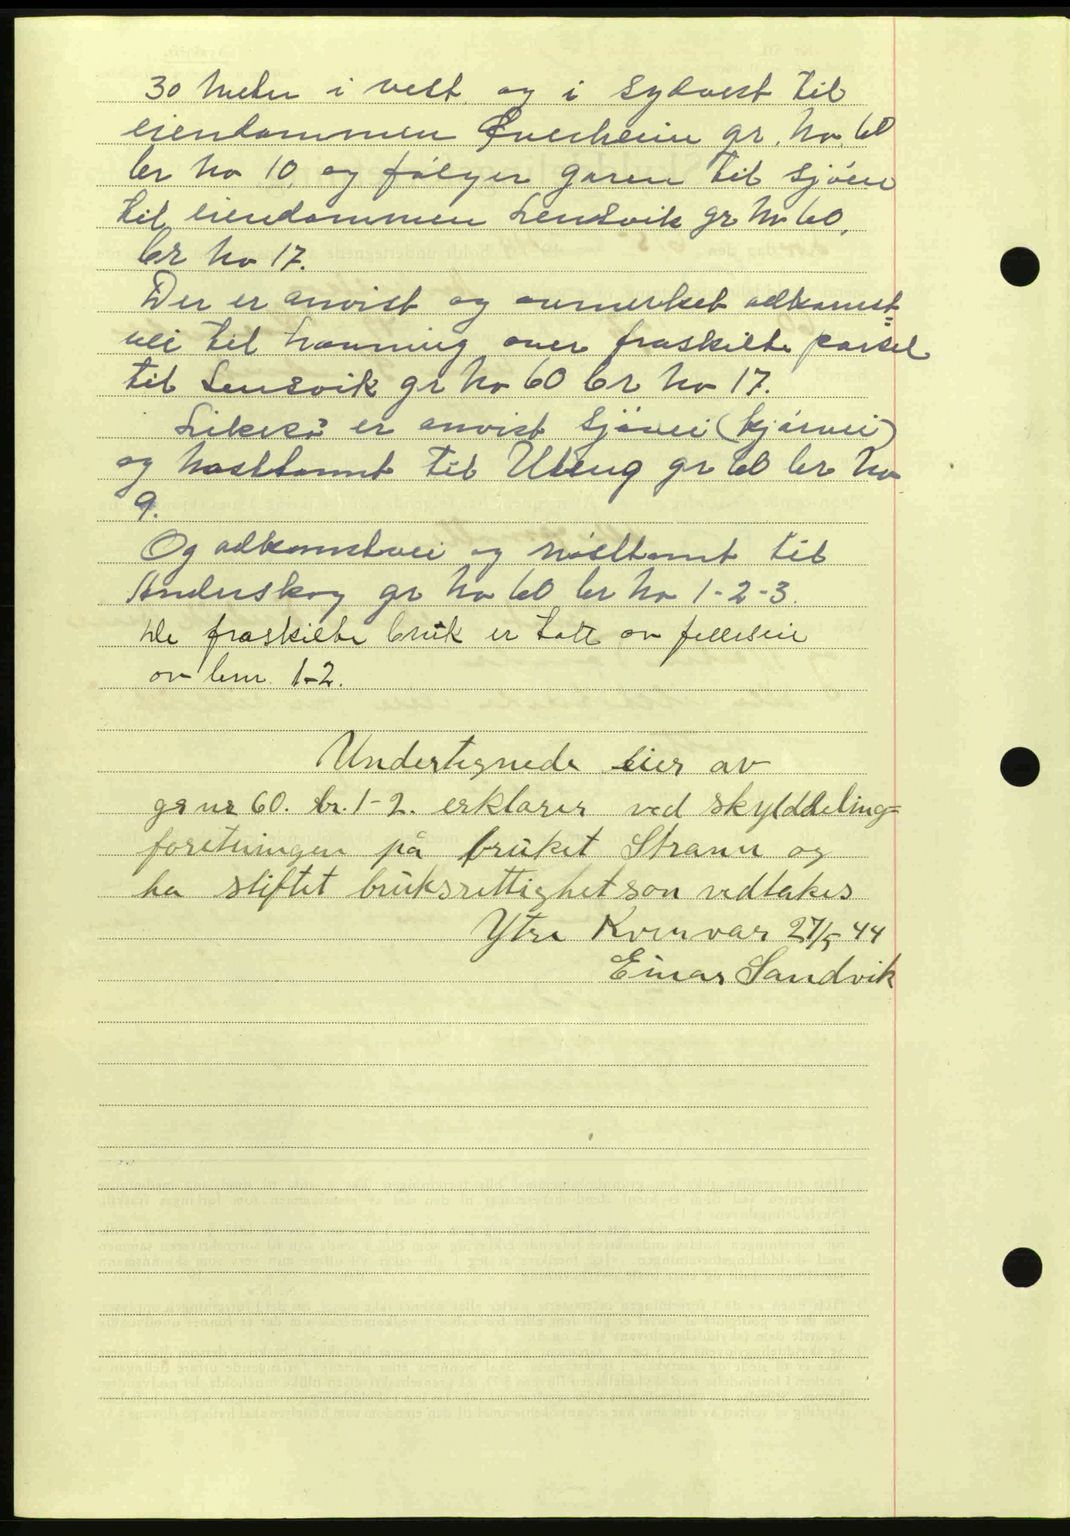 30 meter i vest og i sydvest til
eiendommen Qverheim gr. no 60
br no 10, og følger garen til sjøen
til eiendommen Lensvik gr no 60,
br no 17.
Der er anvist og avmerket adkomst=
vei til havning over fraskilte parsel
til Lensvik gr no 60 br no 17.
Likeså er anvist sjøvei (kjørvei)
og nosttomt til Uteng gr 60 br no
9.
Og adkomstvei og nøsttomt til
Anderskog gr no 60 br no 1-2-3.
De fraskilte bruk er tatt av felleseie
av bnr. 1-2.
Undertegnede eier av
gr nr 60. br. 1-2. erklarer ved skylddeling=
foretningen på bruket Strann og
ha stiftet bruksrettighet son vedtakes
Ytre Kvenvær 27/5 44
Einar Sandvik